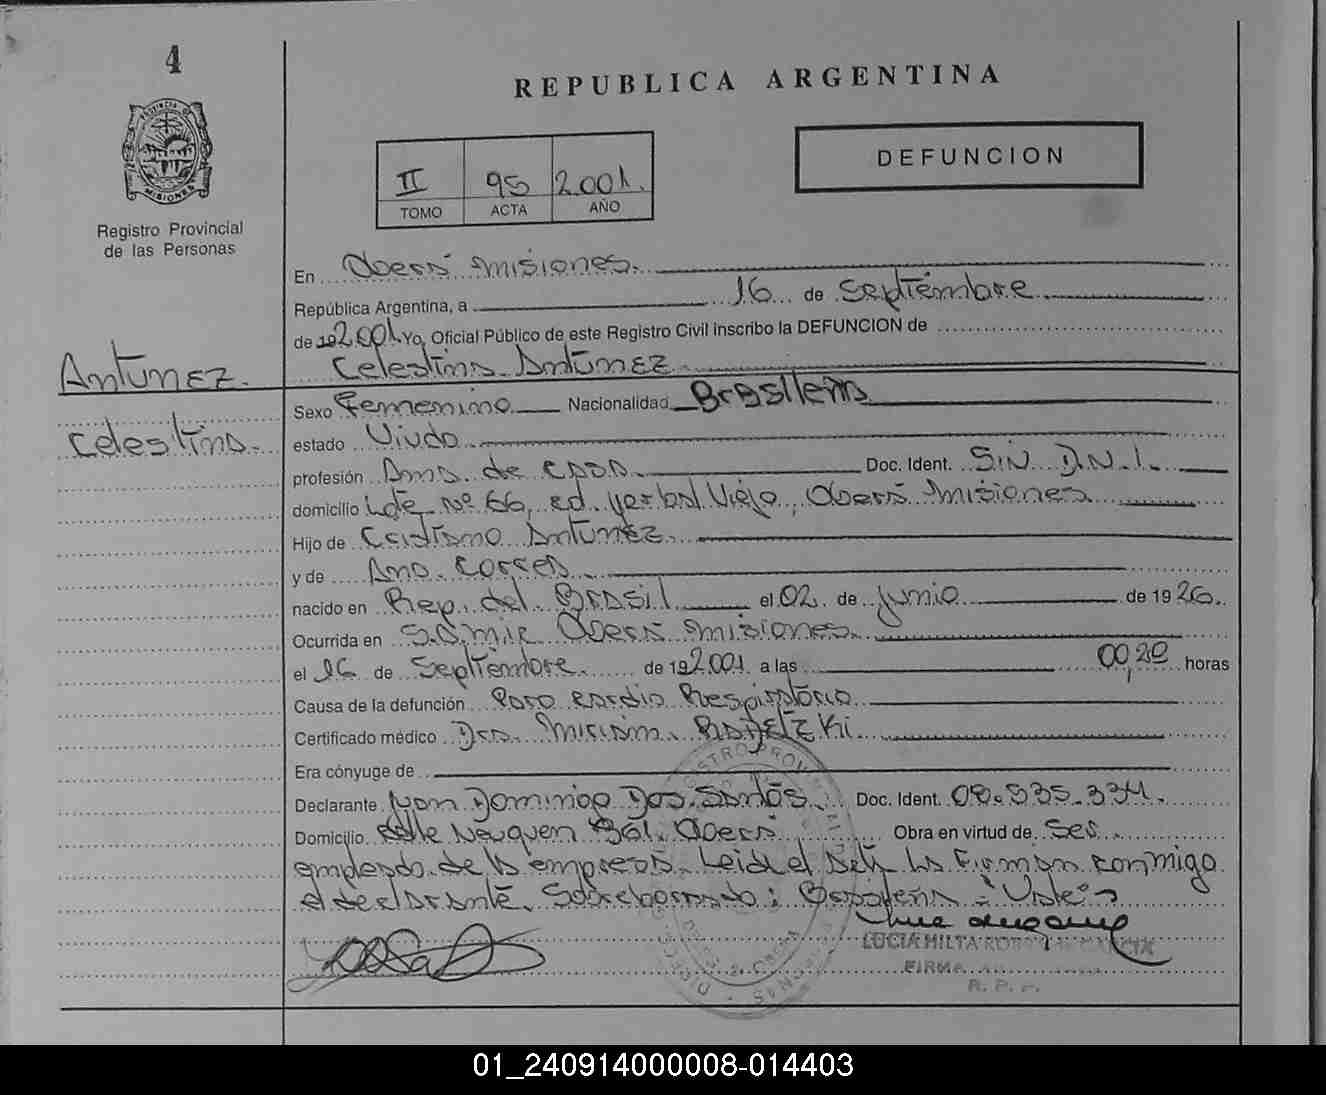 4
PROVINCIA DE
MISIONES
Registro Provincial
de las Personas
REPUBLICA ARGENTINA
II 95 2.001.
TOMO ACTA AÑO
DEFUNCION
En Oberá Misiones.
República Argentina, a 16 de Septiembre
de 192.001. Yo, Oficial Público de este Registro Civil inscribo la DEFUNCION de
Celestina Antunez
Antunez.
Celestina.
Sexo Femenino Nacionalidad Brasileña
estado Viuda
profesión Ama de casa. Doc. Ident. SIN D.N.I.
domicilio Lote Nº 66, Yerbal Viejo, Oberá Misiones
Hijo de Antunez.
y de Ana
nacido en Rep. del Brasil el 02 de Junio de 1926.
Ocurrida en Oberá Misiones.
el 16 de Septiembre de 192.001 a las 00,20 horas
Causa de la defunción Paro cardio Respiratorio
Certificado médico Dra. Miriam
Era cónyuge de
Declarante Juan Domingo Dos Santos Doc. Ident. 08.535.334.
Domicilio Calle Neuquen Oberá Obra en virtud de Ser
empleado de la empresa. Leida el Acta La Firman conmigo
el declarante. Sobreborrado: Brasileña = Vale =
LUCIA MILTA
FIRMA